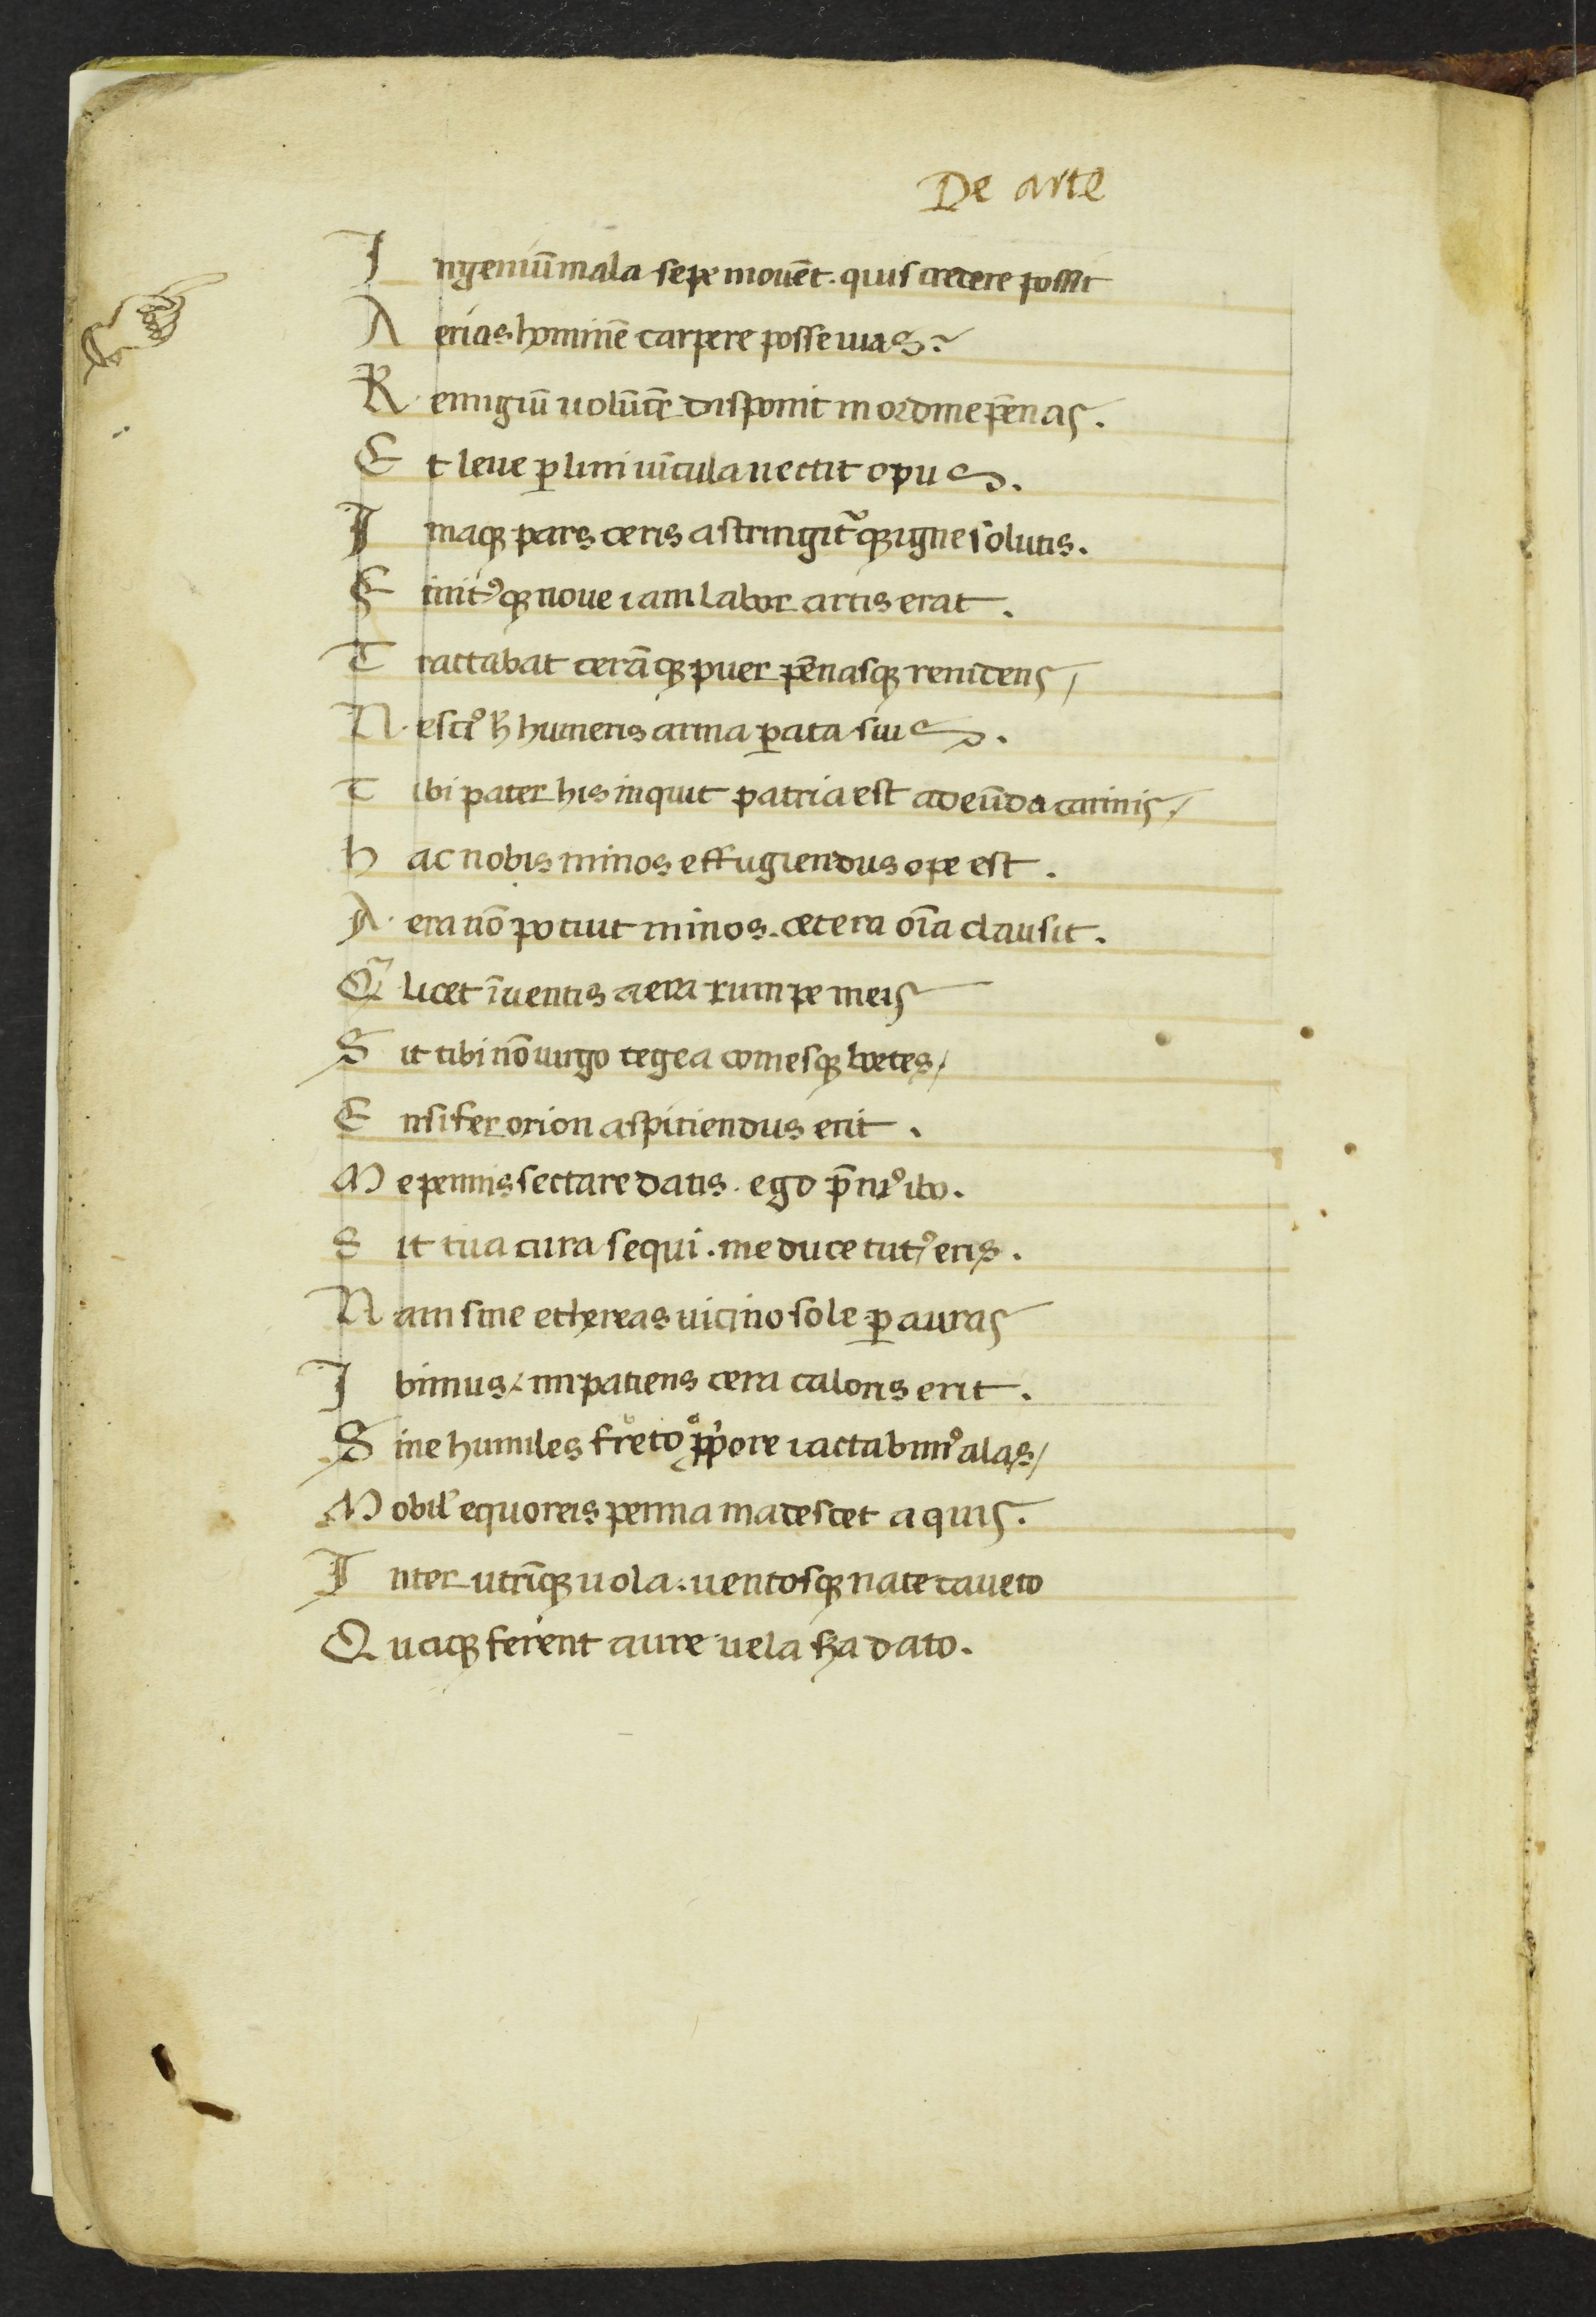 De arte
Ingeniū mala sepe mouēt. quis credere possit
Aerias hominē carpere posse uias?
Remigiū uolucrū disponit in ordine pēnas.
Et leue ꝑ lini uīcula nectit opus.
Imaqꝫ pars ceris astringit᷑qꝫ igne solutis.
Finitꝰqꝫ noue iam labor artis erat.
Tractabat cerāqꝫ puer pēnasqꝫ renidens/
Nesciꝰ hec humeris arma ꝑata suis.
Tibi pater his inquit patria est adeūda carinis/
hac nobis minos effugiendus ope est.
Aera nō potuit minos. cetera oīa clausit.
Qͣ licet īuentis aera rumpe meis
Sit tibi nō uirgo tegea comesqꝫ boetes/
Ensifer orion aspitiendus erit.
Me pennis sectare datis. ego p̄uiꝰ ibo.
Sit tua cura sequi. me duce tutꝰ eris.
Nam siue ethereas uicino sole ꝑ auras
Ibimus/ impatiens cera caloris erit.
Siue humiles freto ꝓpiore iactabimꝰ alas/
Mobil' equoreis penna madescet aquis.
Inter utrūqꝫ uola: uentosqꝫ nate caueto
Quaqꝫ ferent aure uela sꝫa dato.